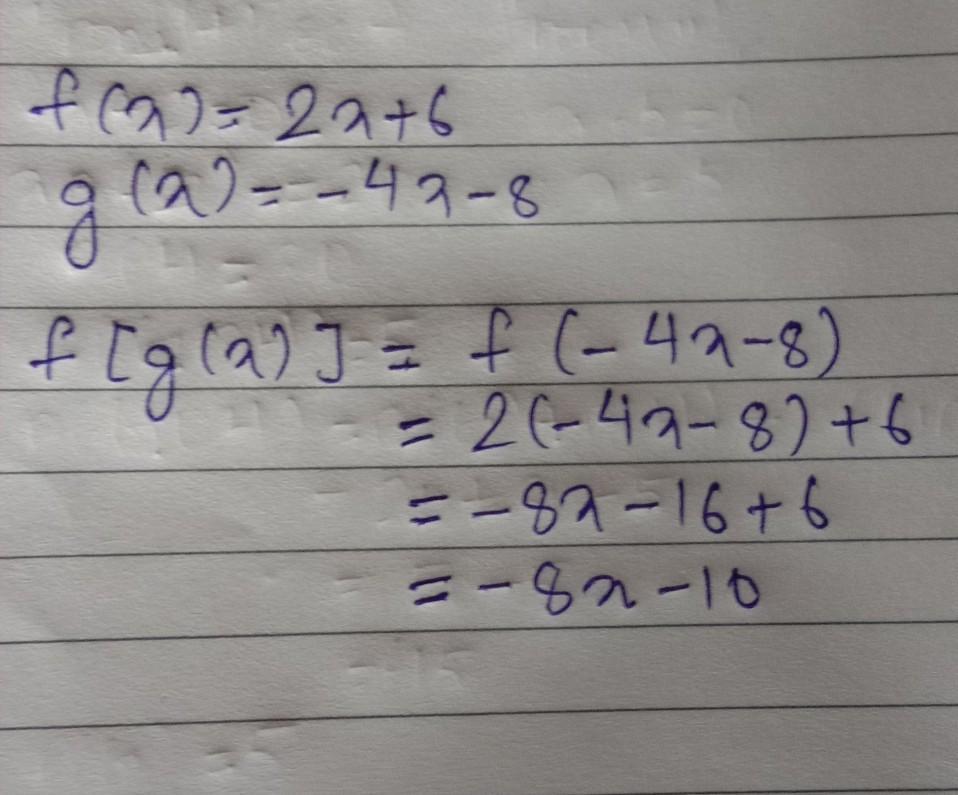 f(x)= 2x+6
g(x)= -4x-8
f[g(x)] = f(-4x-8)
= 2(-4x-8)+6
= -8x-16+6
= -8x-10